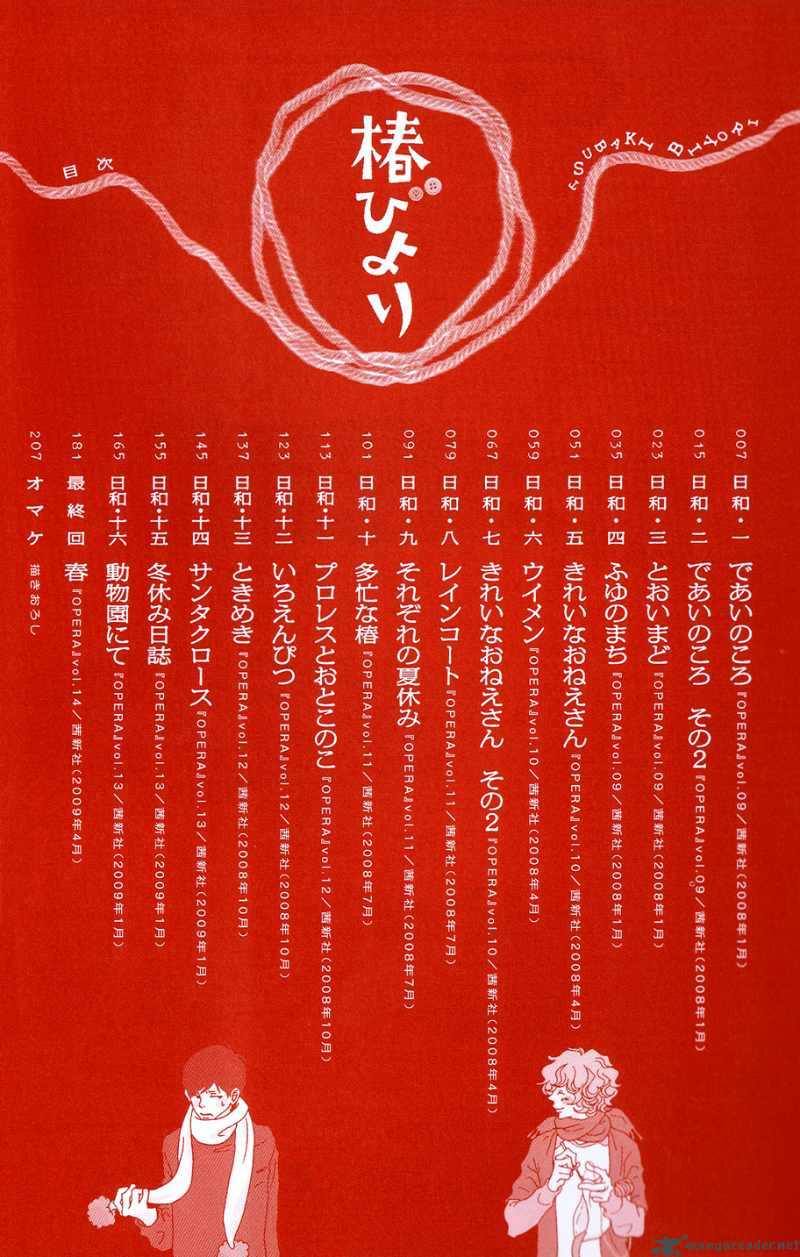 目次
椿びより
TSUBAKI BIYORI
007 日和・一 であいのころ 『OPERA』vol.09／茜新社（2008年1月）
015 日和・二 であいのころ その2 『OPERA』vol.09／茜新社（2008年1月）
023 日和・三 とおいまど 『OPERA』vol.09／茜新社（2008年1月）
035 日和・四 ふゆのまち 『OPERA』vol.09／茜新社（2008年1月）
051 日和・五 きれいなおねえさん 『OPERA』vol.10／茜新社（2008年4月）
059 日和・六 ウイメン 『OPERA』vol.10／茜新社（2008年4月）
067 日和・七 きれいなおねえさん その2 『OPERA』vol.10／茜新社（2008年4月）
079 日和・八 レインコート 『OPERA』vol.11／茜新社（2008年7月）
091 日和・九 それぞれの夏休み 『OPERA』vol.11／茜新社（2008年7月）
101 日和・十 多忙な椿 『OPERA』vol.11／茜新社（2008年7月）
113 日和・十一 プロレスとおとこのこ 『OPERA』vol.12／茜新社（2008年10月）
123 日和・十二 いろえんぴつ 『OPERA』vol.12／茜新社（2008年10月）
137 日和・十三 ときめき 『OPERA』vol.12／茜新社（2008年10月）
145 日和・十四 サンタクロース 『OPERA』vol.13／茜新社（2009年1月）
155 日和・十五 冬休み日誌 『OPERA』vol.13／茜新社（2009年1月）
165 日和・十六 動物園にて 『OPERA』vol.13／茜新社（2009年1月）
181 最終回 春 『OPERA』vol.14／茜新社（2009年4月）
207 オマケ 描きおろし
mangareader.net